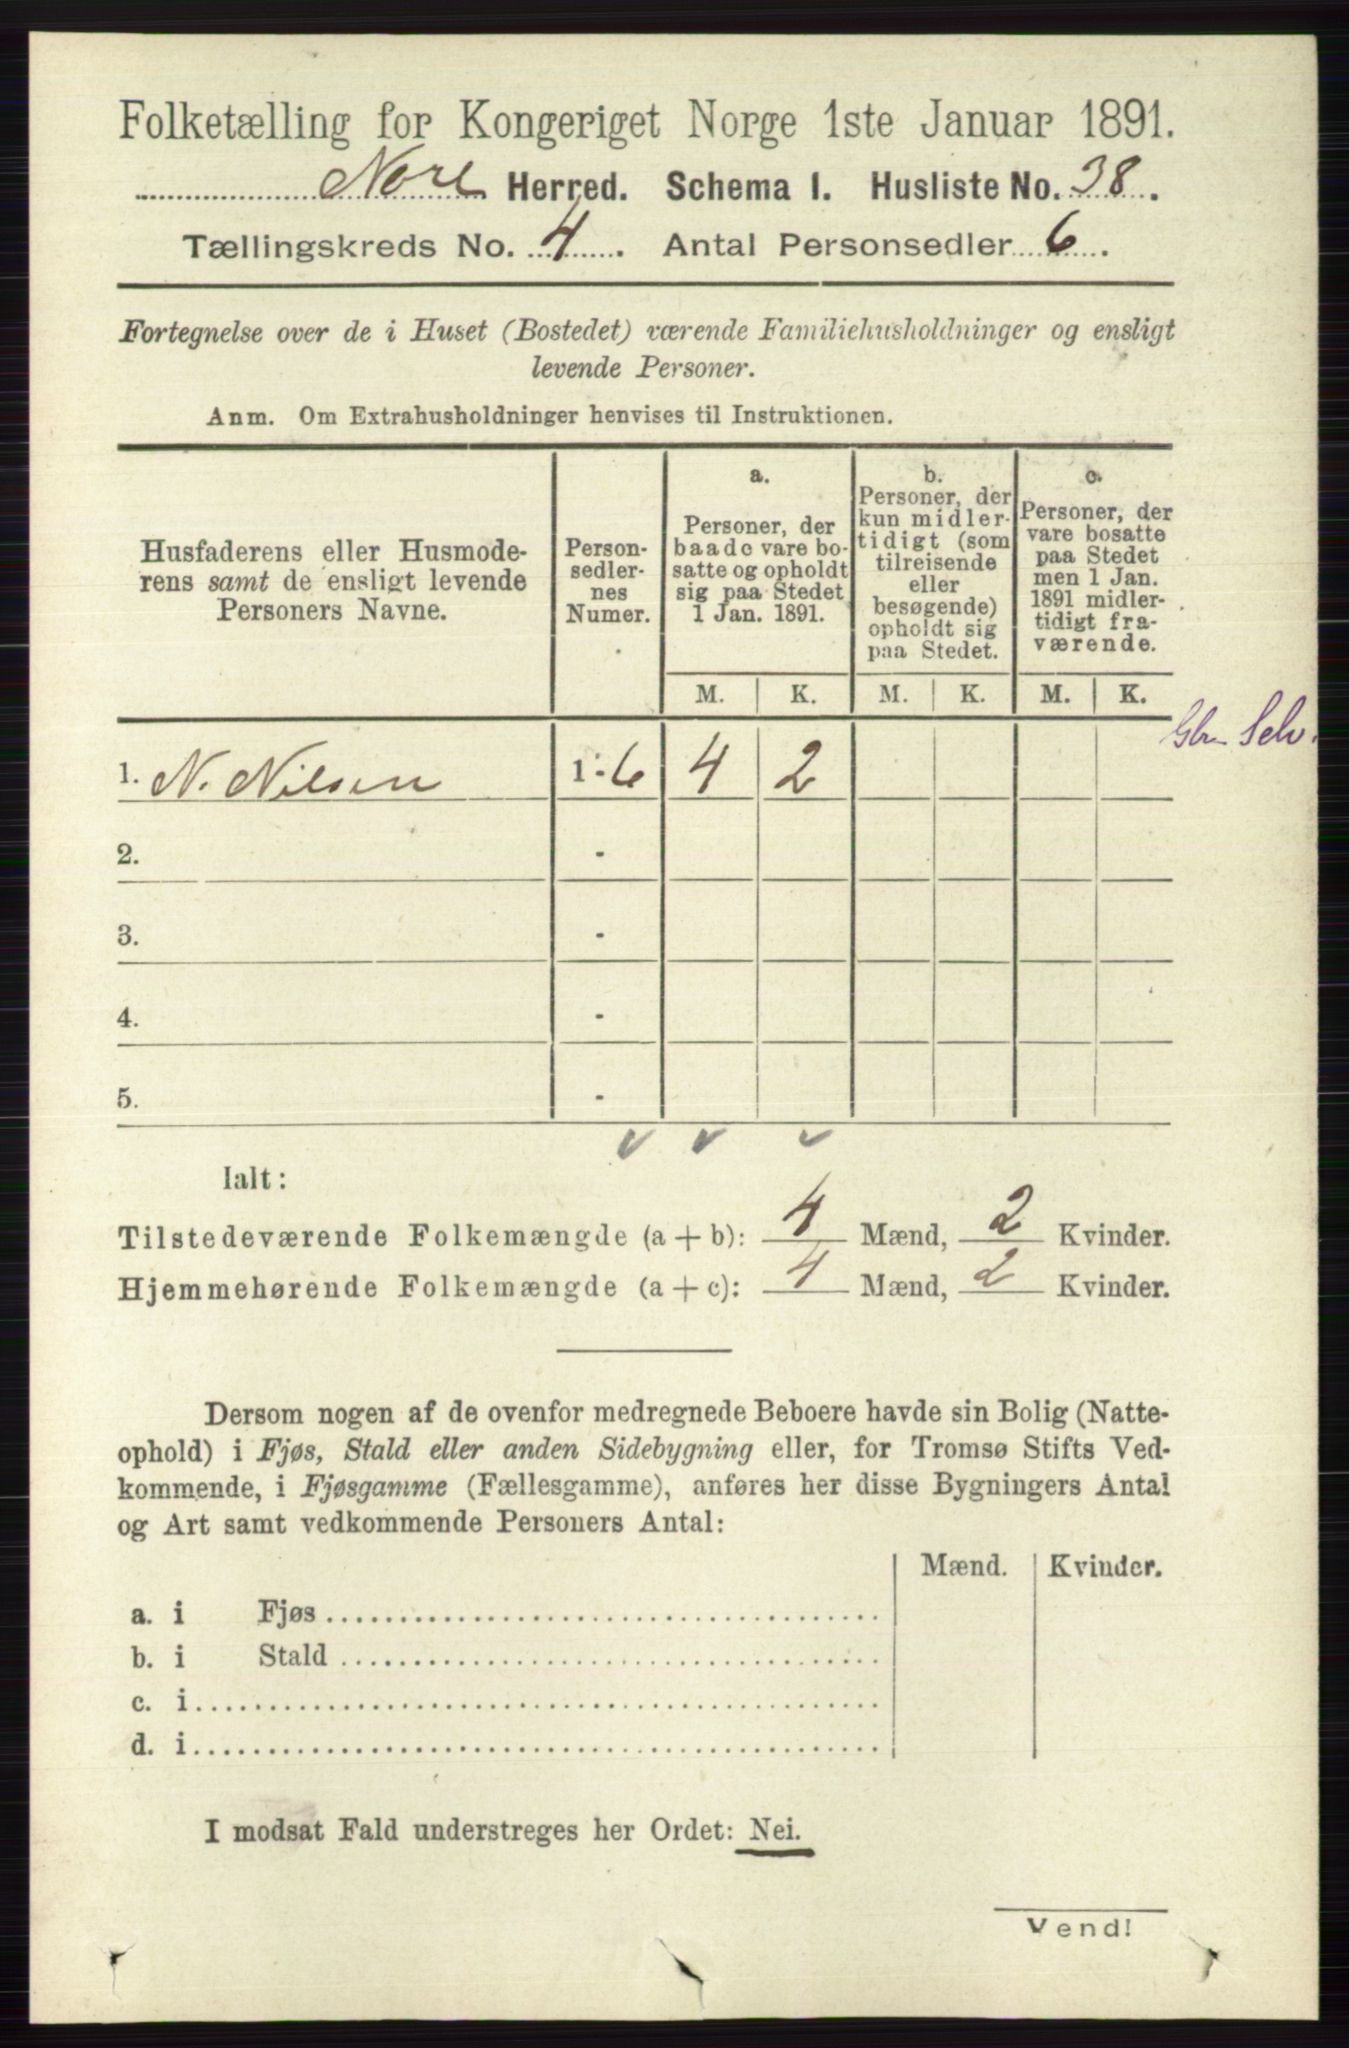 Folketælling for Kongeriget Norge 1ste Januar 1891.
Nore Herred. Schema I. Husliste No. 38.
Tællingskreds No. 4. Antal Personsedler 6.
Fortegnelse over de i Huset (Bostedet) værende Familiehusholdninger og ensligt
levende Personer.
Anm. Om Extrahusholdninger henvises til Instruktionen.
Husfaderens eller Husmode-
rens samt de ensligt levende
Personers Navne.
Person-
sedler-
nes
Numer.
a.
Personer, der
baade vare bo-
satte og opholdt
sig paa Stedet
1 Jan. 1891.
b.
Personer, der
kun midler-
tidigt (som
tilreisende
eller
besøgende)
opholdt sig
paa Stedet.
c.
Personer, der
vare bosatte
paa Stedet
men 1 Jan.
1891 midler-
tidigt fra-
værende.
M. K. M. K. M. K.
Selv.
1. N. Nilsen 1-6 4 2
2. -
3. -
4. -
5. -
Ialt:
Tilstedeværende Folkemængde (a + b): 4 Mænd, 2 Kvinder.
Hjemmehørende Folkemængde (a + c): 4 Mænd, 2 Kvinder.
Dersom nogen af de ovenfor medregnede Beboere havde sin Bolig (Natte-
ophold) i Fjøs, Stald eller anden Sidebygning eller, for Tromsø Stifts Ved-
kommende, i Fjøsgamme (Fællesgamme), anføres her disse Bygningers Antal
og Art samt vedkommende Personers Antal:
Mænd. Kvinder.
a. i Fjøs
b. i Stald
c. i
d. i
I modsat Fald understreges her Ordet: Nei.
Vend!